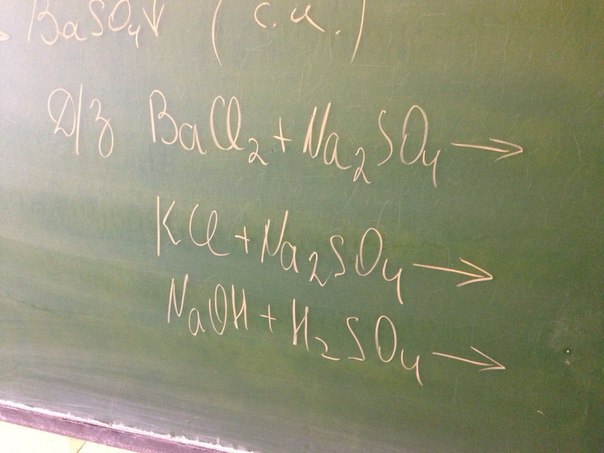 BaSO₄↓ (с.и.)
Д/з BaCl₂ + Na₂SO₄ →
KCl + Na₂SO₄ →
NaOH + H₂SO₄ →